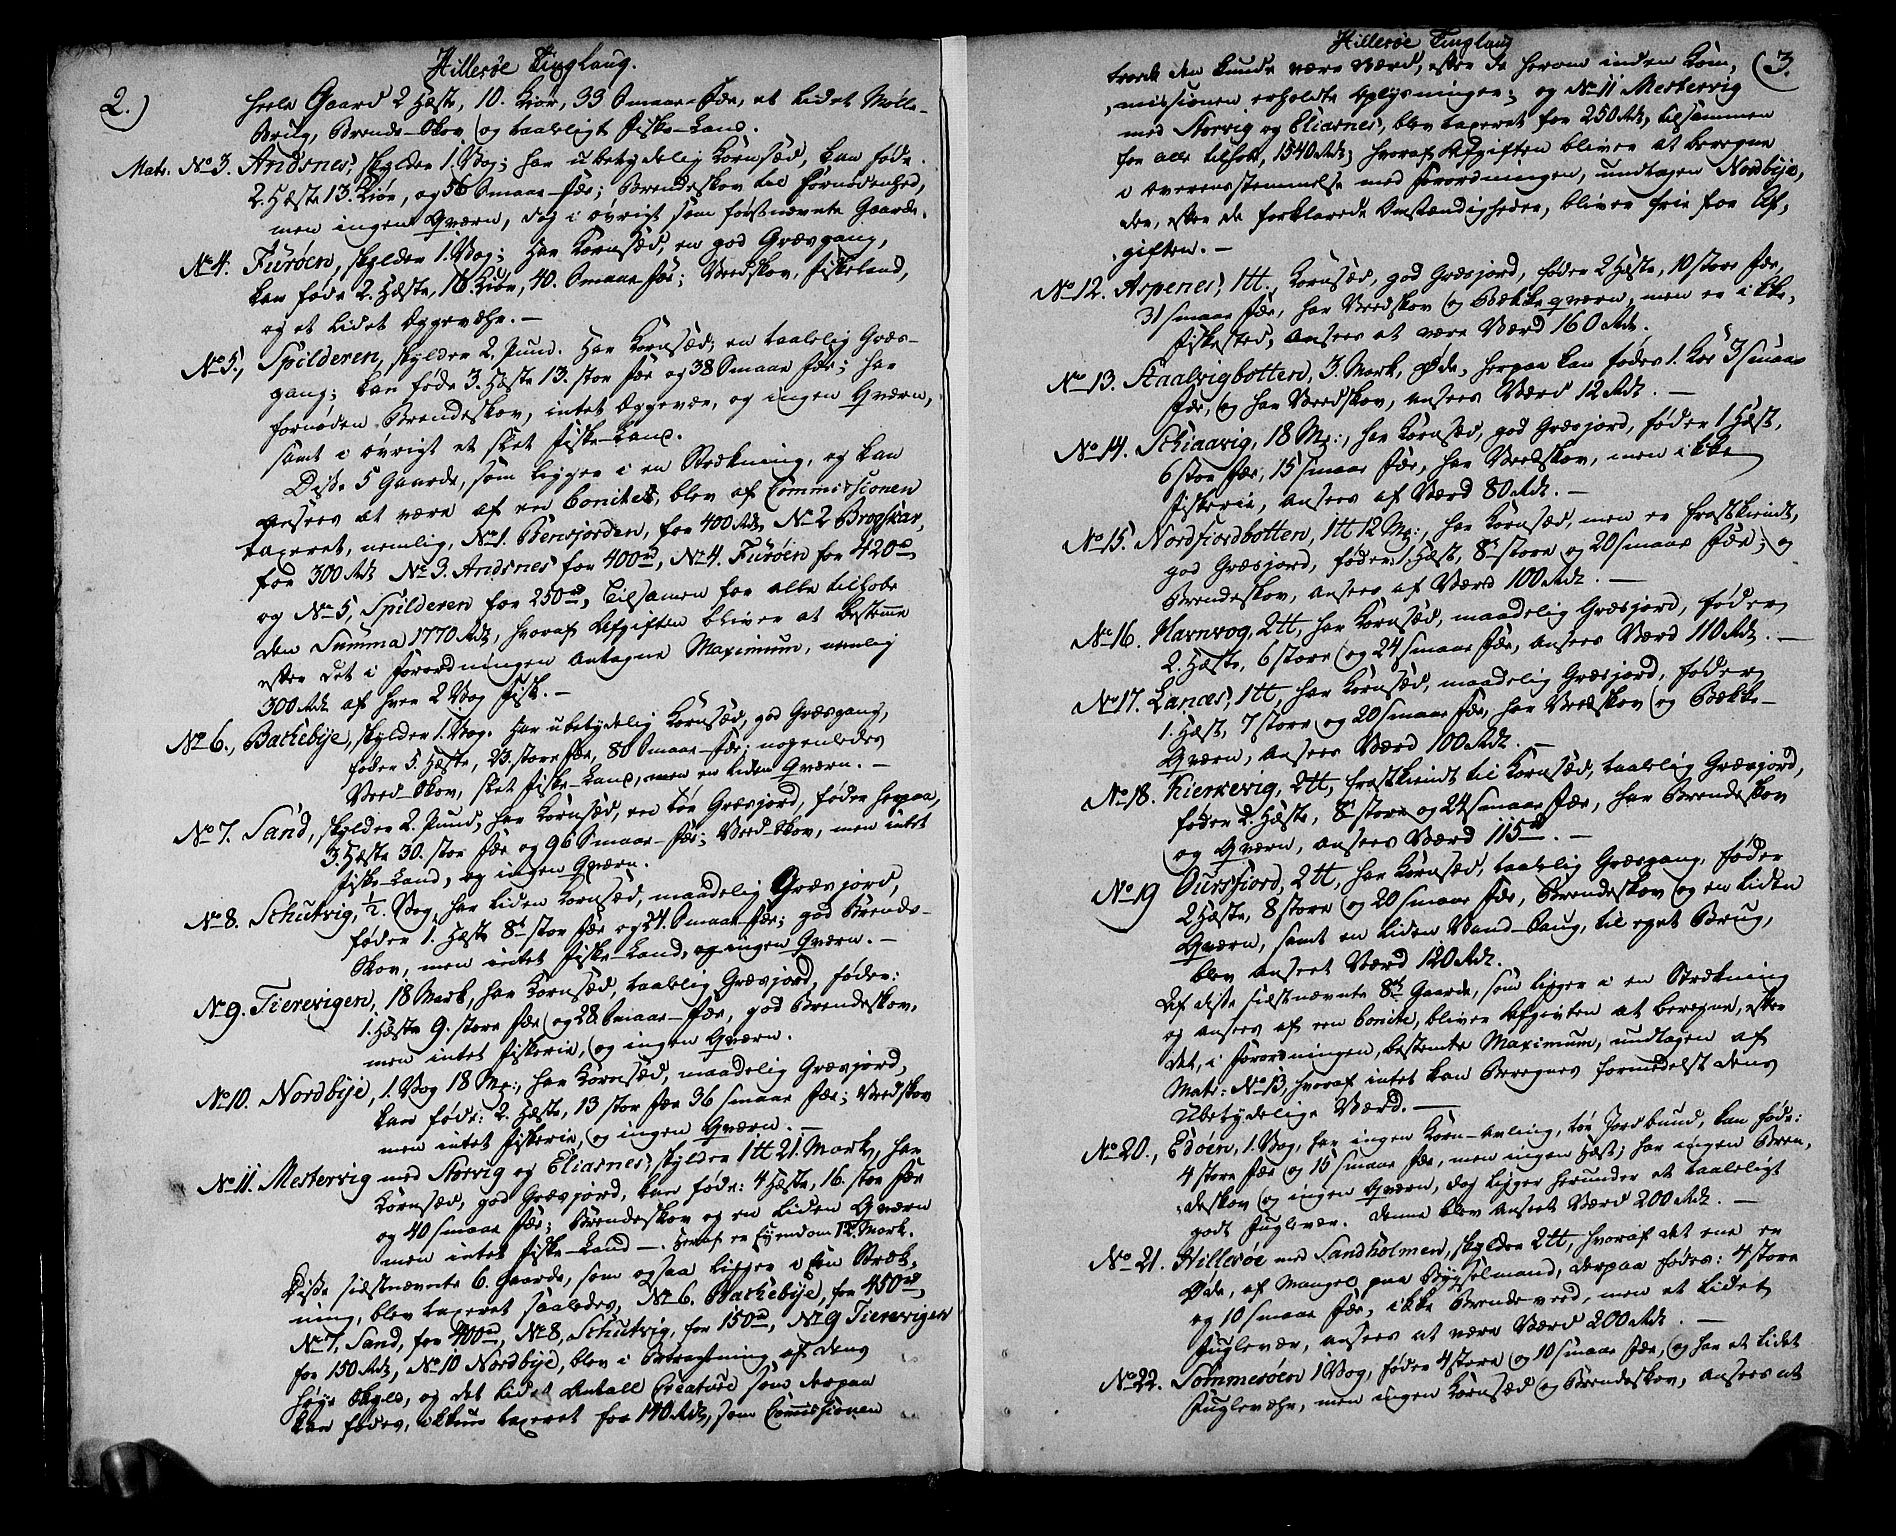 Hillesøe Tinglaug.
2.)
heele Gaard 2 Hæste, 10. Kiør, 33 Smaae-Fæe, et lidet Mølle-
Brug, Brende-Skov og taaleligt Fiske-Land.
Matr. No 3. Andsnes, skylder 1. Vog; har ubetydelig Kornsæd, kan føde
2. Hæste 13. Kiør, og 56 Smaae-Fæe; Brendeskov til Fornødenhed,
men ingen Qværn, dog i øvrigt som førstnævnte Gaarde.
No 4. Furøen, skylder 1. Vog; Har Kornsæd, en god Græsgang,
kan føde 2. Hæste, 16. Kiør, 40. Smaae Fæe; Vedskov, Fiskeland,
og et lidet Eggevæhr. —
No 5., Spilderen, skylder 2. Pund. Har Kornsæd; en taalelig Græs-
gang; kan føde 3. Hæste 13. stor Fæe og 38 Smaae Fæe; har
fornøden Brendeskov, intet Eggevær, og ingen Qværn,
samt i øvrigt et slet Fiske-Land.
Disse 5 Gaarde, som ligger i en Strækning, og kan
ansees at være af een bonitet, blev af Commissionen
taxeret, nemlig, No 1. Bensjorden, for 400 Rdr, No 2 Brogskar,
for 300 Rdr No 3. Andsnes for 400 rd, No 4. Furøen for 420 rd,
og No 5, Spilderen for 250 rd, tilsamen for alle tilhobe
den Summa 1770 Rdr, hvoraf Afgiften bliver at bestemme
efter det i Forordningen antagne Maximum, nemlig
300 Rdr af hver 2 Vog Fisk. —
No 6., Bachebye, skylder 1. Vog. Har ubetydelig Kornsæd, god Græsgang,
føder 5. Hæste, 23. store Fæe, 80 Smaae-Fæe; nogenledes
Veed-Skov, slet Fiske-Land, men en liden Qværn. —
No 7. Sand, skylder 2. Pund, har Kornsæd, een tør Græsjord, føder herpaa,
3. Hæste 30. stor Fæe og 96 Smaae-Fæe; Veed-Skov, men intet
Fiske-Land, og ingen Qværn.
No 8. Schutvig, 1/2. Vog, har liden Kornsæd, maadelig Græsjord,
føder 1. Hæst 8te stor Fæe og 24. Smaae-Fæe; god Brende-
Skov, men intet Fiske-Land, og ingen Qværn. —
No 9. Tierevigen, 18 Mark, har Kornsæd, taalelig Græsjord, føder:
1. Hæste 9. store Fæe og 28. Smaae-Fæe, god Brendeskov,
men intet Fiskerie, og ingen Qværn.
No 10. Nordbye, 1. Vog 18 Mr:, har Kornsæd, maadelig Græsjord,
kan føde: 2. Hæste, 13 stor Fæe 36 smaae Fæe; Vedskov
men intet Fiskerie, og ingen Qværn. —
No 11. Mestervig med Storvig og Eliasnes, skylder 1 tt 21. Mark, har
Kornsæd, god Græsjord, kan føde: 4 Hæste, 16. stor Fæe
og 40 smaae Fæe; Brendeskov og en liden Qværn
men intet Fiske-Land —. Heraf er Eyendom 12. Mark.
Disse sidstnævnte 6. Gaarde, som ogsaa ligger i Een Stræk-
ning, blev taxeret saaledes, No 6. Bachebye, for 450 rd,
No 7, Sand, for 400 rd, No 8, Schutvig, for 150 rd, No 9 Tierevigen
for 150 Rdr, No 10 Nordbye, blev i Betragtning af dens
høye Skyld, og det lidet Antall Creature som derpaa
kan fødes, ikkun taxeret for 140 Rdr, som Commissionen
Hillesøe Tinglaug
(3.
troede den kunde være værd, efter de herom inden Com,
,missionen erholdte Oplysninger; og No 11 Mestervig
med Storvig og Eliasnes, blev taxeret for 250 Rdr, tilsammen
for alle tilhobe, 1540 Rdr, hvoraf Afgiften bliver at beregne
i Overeensstemmelse med Forordningen, undtagen Nordbye,
der, efter de forklarede Omstændigheder, bliver frie for Af,
,giften. —
No 12. Aspenes, 1 tt., Kornsæd, god Græsjord, føder 2 Hæste, 10 store Fæe,
31 smaae Fæe, har Veedskov og Bækkeqværn, men er ikke,
Fiskested; ansees at være Værd 160 Rdr.
No 13. Staalvigbotten, 3. Mark, Øde, herpaa kan fødes 1. Koe 3 smaae
Fæe, og har Veedskov, ansees Værd 12 Rdr. —
No 14. Schiaavig, 18 Mr:, har Kornsæd, god Græsjord, føder 1 Hæst,
6 stor Fæe, 15 smaae Fæe, har Veedskov, men ikke
Fiskerie, ansees af Værd 80 Rdr. —
No 15. Nordfiordbotten, 1 tt 12 Mr:, har Kornsæd, men er frostkiendt,
god Græsjord, føder: 1 Hæst, 8te store og 20 smaae Fæe; og
Brendeskov, ansees af Værd 100 Rdr. —
No 16. Havnvog, 2 tt, har Kornsæd, maadelig Græsjord, føder
2. Hæste, 6 store og 24 smaae Fæe, ansees Værd 110 Rdr. —
No 17. Lanæs, 1 tt, har Kornsæd, maadelig Græsjord, føder
1. Hæst, 7 store og 20 smaae Fæe, har Vedskov og Bække-
Qværn, ansees Værd 100 Rdr. —
No 18. Kierresvig, 2 tt, frostkiendt til Kornsæd, taalelig Græsjord,
føder 2. Hæste, 8te store og 24 smaae Fæe, har Brendeskov
og Qværn, ansees Værd 115 rd. —
No 19 Oursfiord, 2 tt, har Kornsæd, taalelig Græsgang, føder
2 Hæste, 8 store og 20 smaae Fæe, Brendeskov og en liden
Qværn, samt en liden Vand-Saug, til eget Brug,
blev anseet Værd 120 Rdr.
Af disse sidstnævnte 8te Gaarde, som ligger i en Strækning
og ansees af een bonite, bliver Afgivten at beregne, efter
det, i Forordningen, bestemte Maximum, undtagen af
Matr: No 13, hvoraf intet kan beregnes formedelst dens
Ubetydelige Værd. —
No 20., Edøen, 1. Vog, har ingen Korn-Avling, tør Jordbund, kan føde:
4 store Fæe og 15 smaae Fæe, men ingen Hæst; har ingen Bren,
,deskov og ingen Qværn, dog ligger herunder et taaleligt
godt Fuglevær. Denne blev anseet Værd 200 Rdr. —
No 21. Hillesøe med Sandholmen, skylder 2 tt, hvoraf det ene er
Øde, af Mangel paa Bygselmand, derpaa fødes: 4 store
og 10 smaae Fæe, ikke Brende-veed, men et lidet
Fuglevær, ansees at være Værd 200 Rdr. —
No 22. Sommerøen 1 Vog, føder 4 store og 10 smaae Fæe, og har et lidet
Fuglevæhr, men ingen Kornsæd og Brendeskov, ansees at